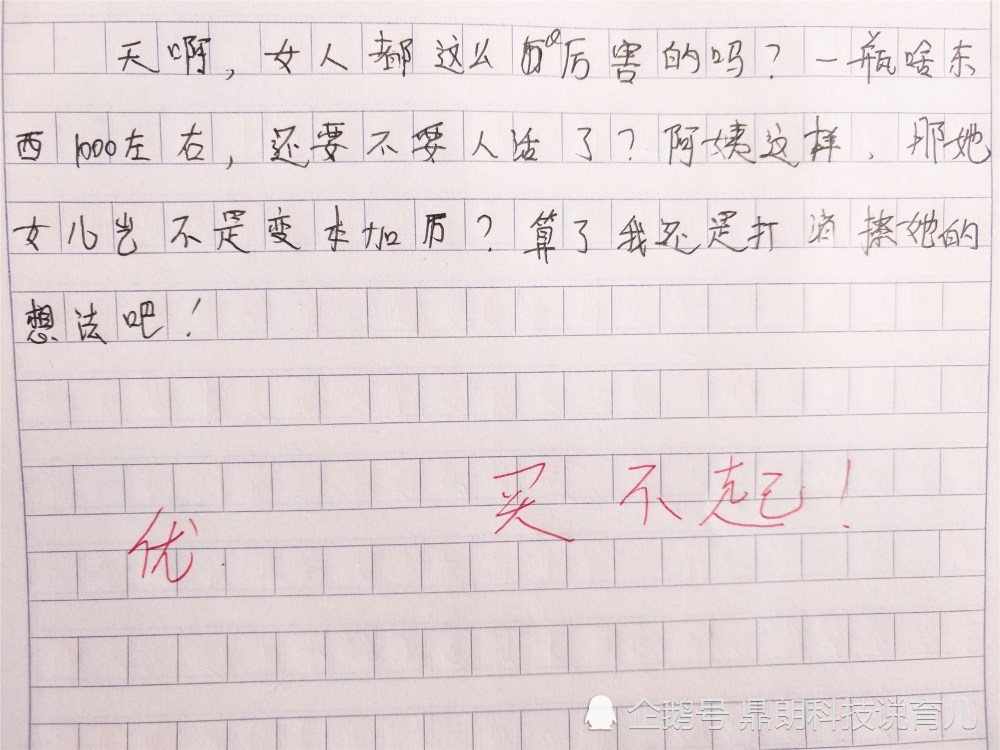 天啊，女人都这么厉害的吗？一瓶啥东
西1000左右，还要不要人活了？阿姨这样，那她
女儿岂不是变本加厉？算了我还是打消撩她的
想法吧！
买不起！
优.
企鹅号 鼎朗科技说育儿